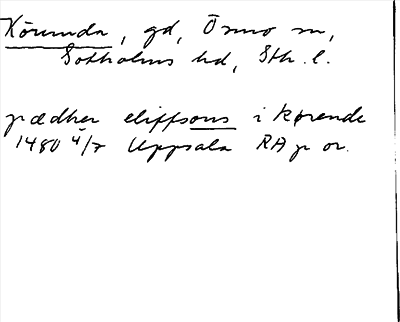 Körunda, gd, Ösmo sn,
Sotholms hd, Sth. l.
pædher eliffsons i kørende
1480 4/7 Uppsala RA p or.